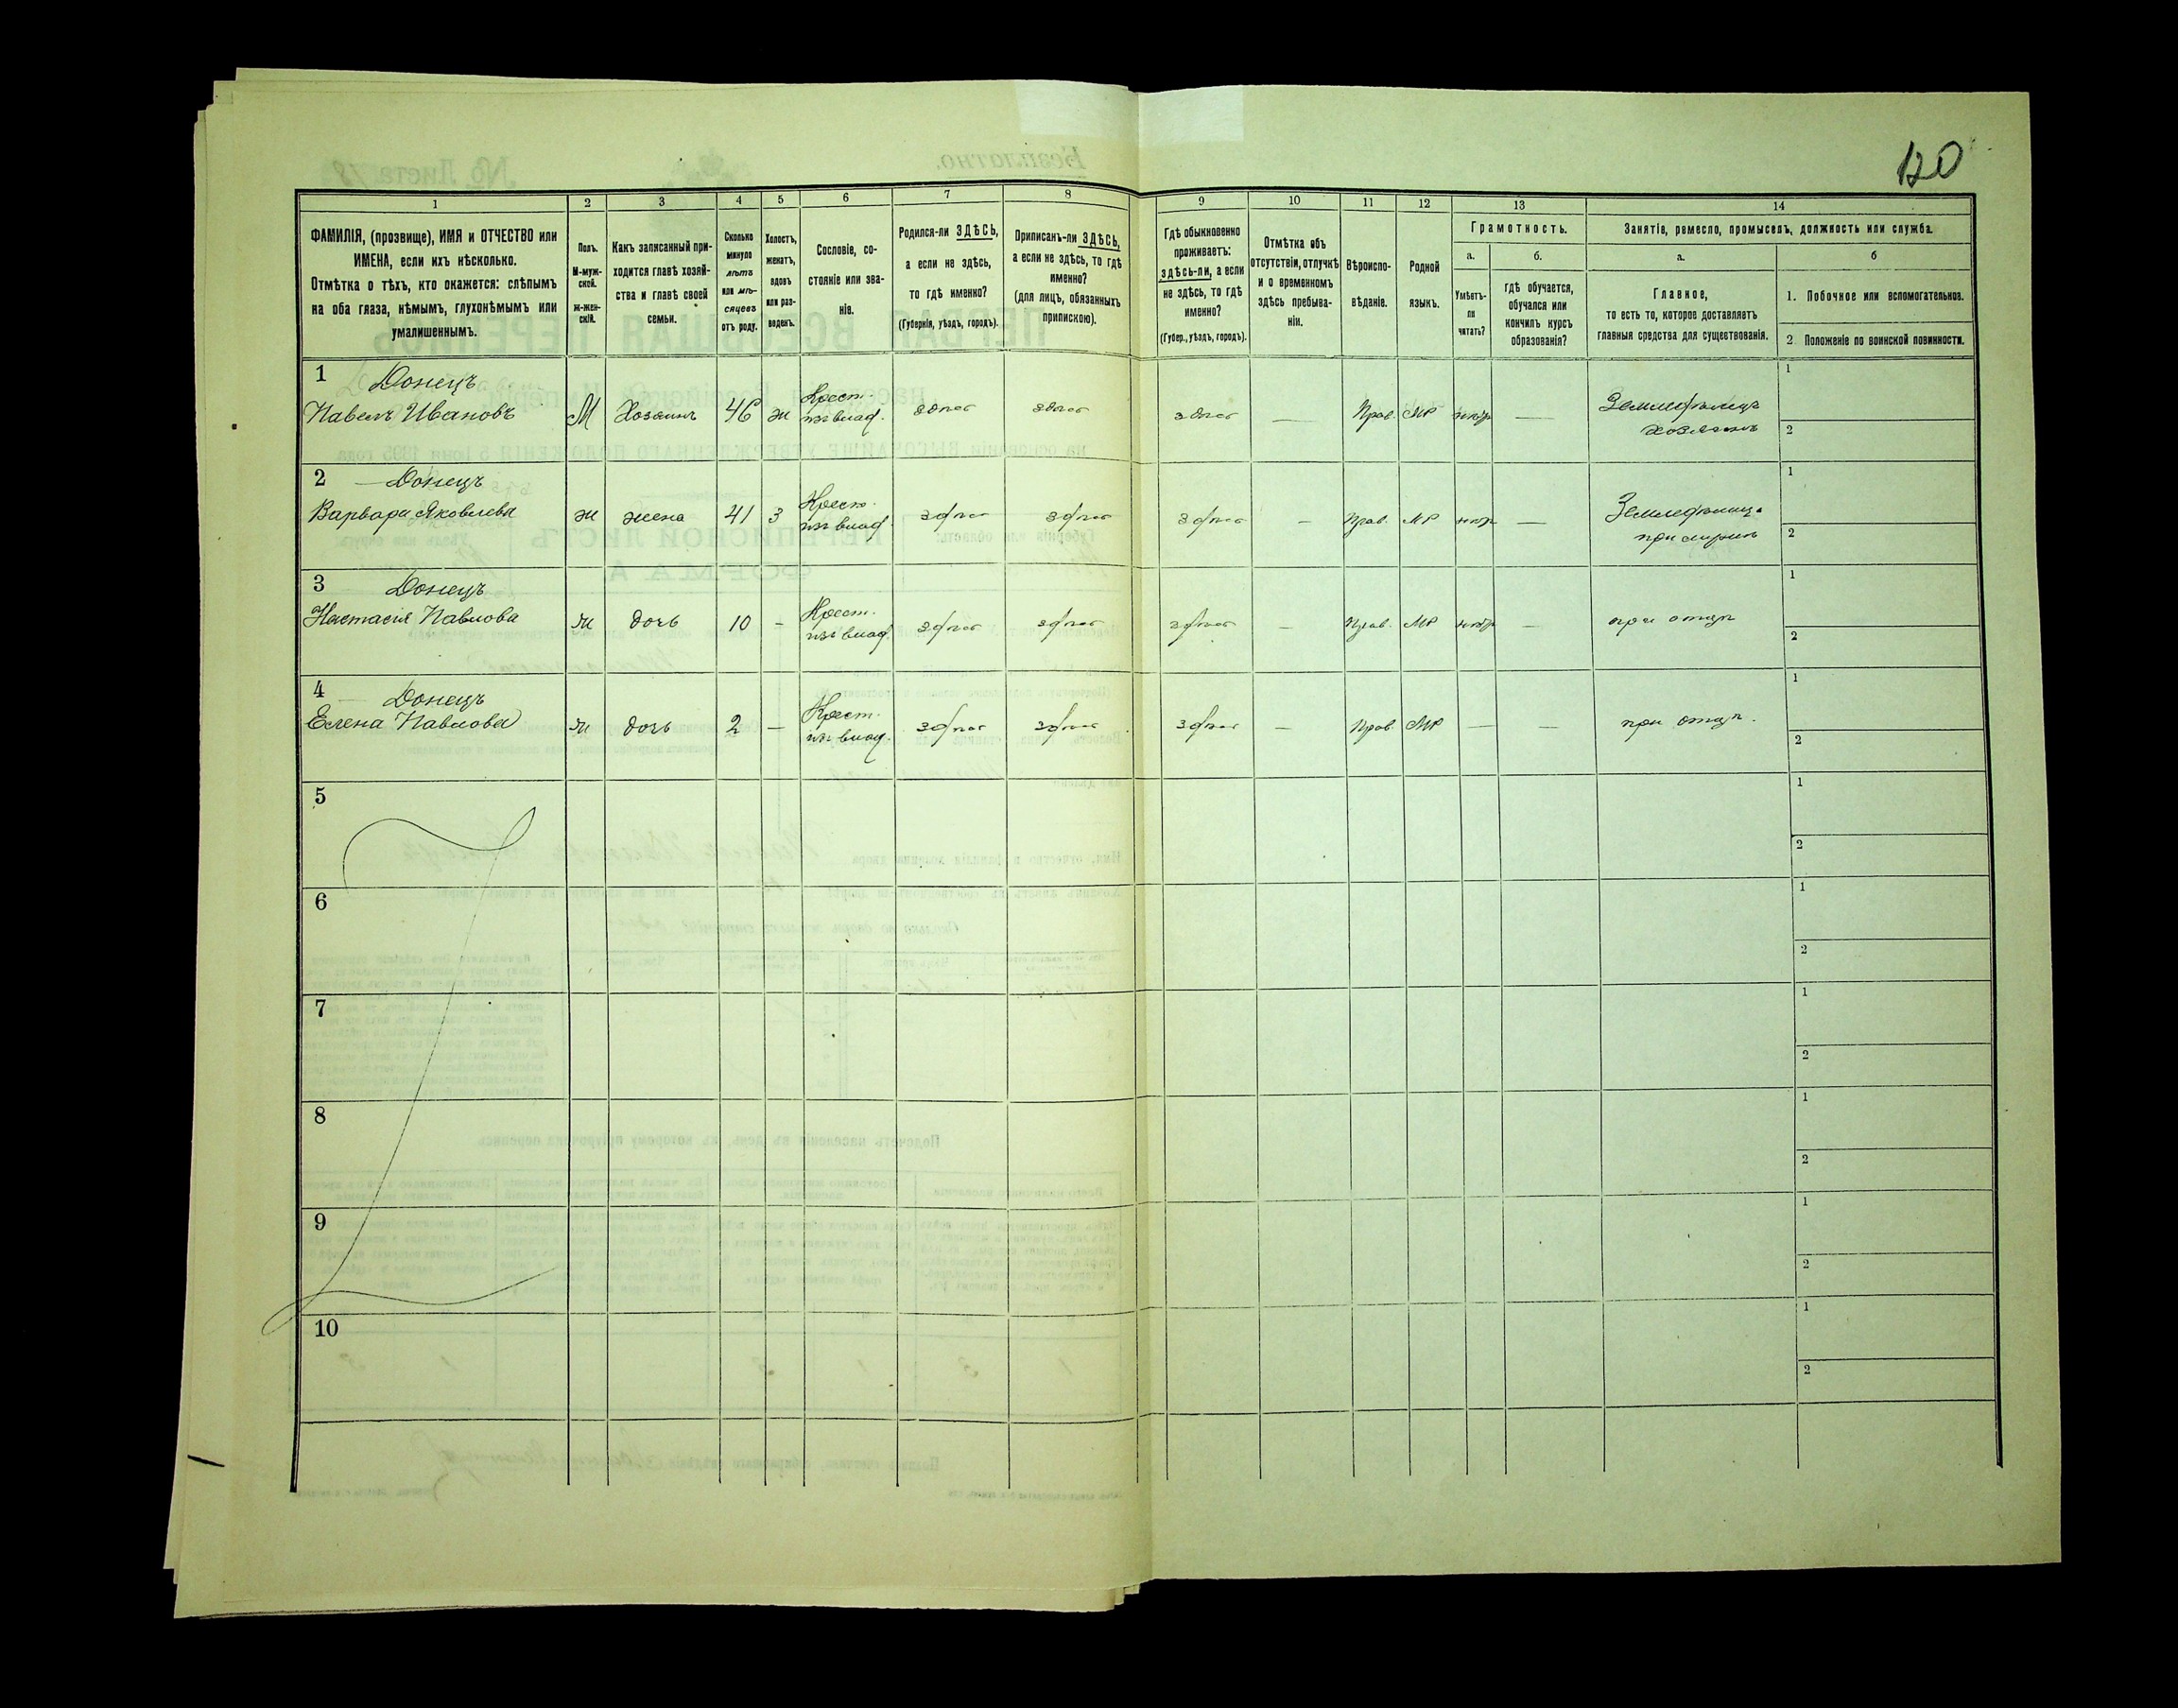 120
1
2
3
4
5
6
7
8
9
10
11
12
13
14
ФАМИЛІЯ, (прозвище), ИМЯ и ОТЧЕСТВО или
ИМЕНА, если ихъ нѣсколько.
Отмѣтка о тѣхъ, кто окажется: слѣпымъ
на оба глаза, нѣмымъ, глухонѣмымъ или
умалишеннымъ.
Полъ.
М-муж-
ской.
Ж-жен-
скій.
Какъ записанный при-
ходится главѣ хозяй-
ства и главѣ своей
семьи.
Сколько
минуло
лѣтъ
или мѣ-
сяцевъ
отъ роду.
Холостъ,
женатъ,
вдовъ
или раз-
веденъ.
Сословіе, со-
стояніе или зва-
ніе.
Родился-ли ЗДѢСЬ,
а если не здѣсь,
то гдѣ именно?
(Губернія, уѣздъ, городъ).
Приписанъ-ли ЗДѢСЬ,
а если не здѣсь, то гдѣ
именно?
(для лицъ, обязанныхъ
припискою).
Гдѣ обыкновенно
проживаетъ:
здѣсь-ли, а если
не здѣсь, то гдѣ
именно?
(Губер., уѣздъ, городъ).
Отмѣтка объ
отсутствіи, отлучкѣ
и о временномъ
здѣсь пребыва-
ніи.
Вѣроиспо-
вѣданіе.
Родной
языкъ.
Грамотность.
а.
б.
Умѣетъ-
ли
читать?
гдѣ обучается,
обучался или
кончилъ курсъ
образованія?
Занятіе, ремесло, промыселъ, должность или служба.
а.
б
Главное,
то есть то, которое доставляетъ
главныя средства для существованія.
1. Побочное или вспомогательное.
2. Положеніе по воинской повинности.
1 Донецъ
Павелъ Ивановъ
М
Хозяинъ
46
ж
Крест.
изъ влад.
здѣсь
здѣсь
здѣсь
—
Прав.
МР
нѣтъ
—
Земледѣлецъ
хозяинъ
1
2
2 Донецъ
Варвара Яковлева
ж
жена
41
з
Крест.
изъ влад.
здѣсь
здѣсь
здѣсь
—
Прав.
МР
нѣтъ
—
1
2
3 Донецъ
Настасія Павлова
ж
дочь
10
-
Крест.
изъ влад.
здѣсь
здѣсь
здѣсь
—
Прав.
МР
нѣтъ
—
при отцѣ
1
2
4 Донецъ
Елена Павлова
ж
дочь
2
—
Крест.
изъ влад.
здѣсь
здѣсь
здѣсь
—
Прав.
МР
—
—
при отцѣ.
1
2
5
1
2
6
1
2
7
1
2
8
1
2
9
1
2
10
1
2